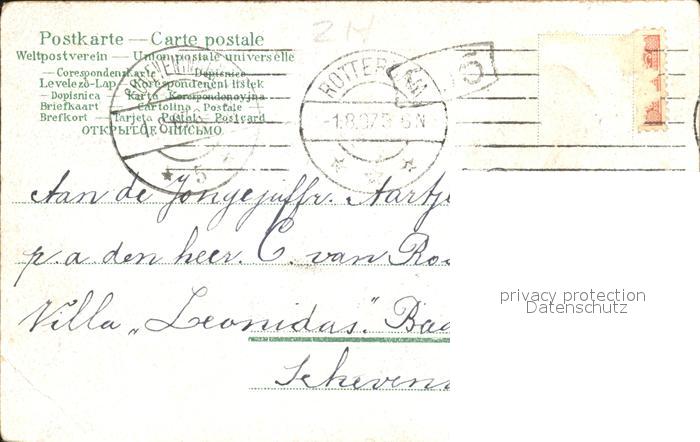 Postkarte — Carte postale
Weltpostverein — Union postale universelle
— Corespondenzkarte Dopisnice
Levelező-Lap Korespondenční lístek
— Dopisnica Karta Korespondencyjna
Briefkaart — Cartolina Postale
Brefkort — Tarjeta Postal Postcard
ОТКРЫТОЕ ПИСЬМО
ROTTERDAM
1.8.07.5-6N
5
Aan de Jongejuffr. Aartje
p. a den heer. C. van
Villa „Leonidas."
privacy protection
Datenschutz